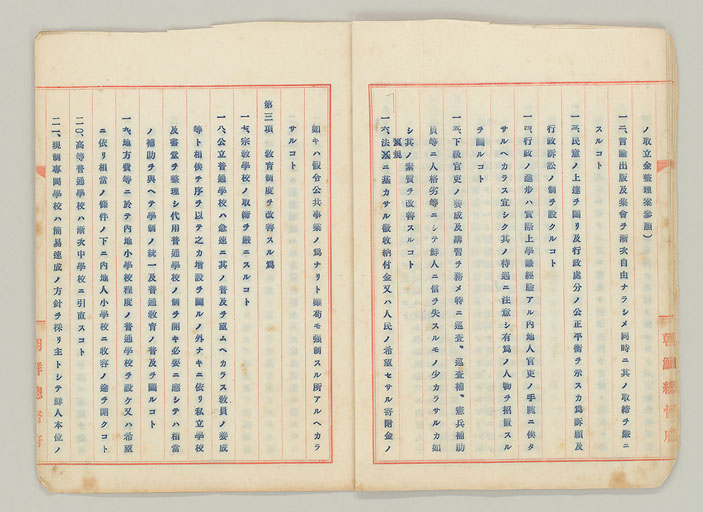 ノ取立金整理案參照)
一二、言論出版及集會ヲ漸次自由ナラシメ同時ニ其ノ取締ヲ嚴ニ
スルコト
一三、民意ノ上達ヲ圖リ及行政處分ノ公正平衡ヲ示スカ爲訴願及
行政訴訟ノ制ヲ設クルコト
一四、行政ノ進歩ハ實際上學識經驗アル內地人官吏ノ手腕ニ俟タ
サルヘカラス宜シク其ノ待遇ニ注意シ有爲ノ人物ヲ招致スル
ヲ圖ルコト
一五、下級官吏ノ養成及講習ヲ務メ特ニ巡査、巡査補、憲兵補助
員等ニ人格劣等ニシテ鮮人ニ信ヲ失スルモノ少カラサルカ如
シ其ノ素質ヲ改善スルコト
一六、法規ニ基カサル徵收納付金又ハ人民ノ希望セサル寄附金ノ
如キハ假令公共事業ノ爲ナリト雖苟モ強制スル所アルヘカラ
サルコト
第三項 敎育制度ヲ改善スル爲
一七、宗敎學校ノ取締ヲ嚴ニスルコト
一八、公立普通學校ハ急速ニ其ノ普及ヲ望ムヘカラス敎員ノ養成
等ト相俟チ序ヲ以テ之カ增設ヲ圖ルノ外ナキニ依リ私立學校
及書堂ヲ整理シ代用普通學校ノ制ヲ開キ必要ニ應シテハ相當
ノ補助ヲ與ヘテ學制ノ統一及普通敎育ノ普及ヲ圖ルコト
一九、地方費等ニ於テ內地小學校程度ノ普通學校ヲ設ケ又ハ希望
ニ依リ相當ノ條件ノ下ニ內地人小學校ニ收容ノ途ヲ開クコト
二〇、高等普通學校ハ漸次中學校ニ引直スコト
二一、現制專門學校ハ簡易速成ノ方針ヲ採リ主トシテ鮮人本位ノ
朝鮮總督府
朝鮮總督府